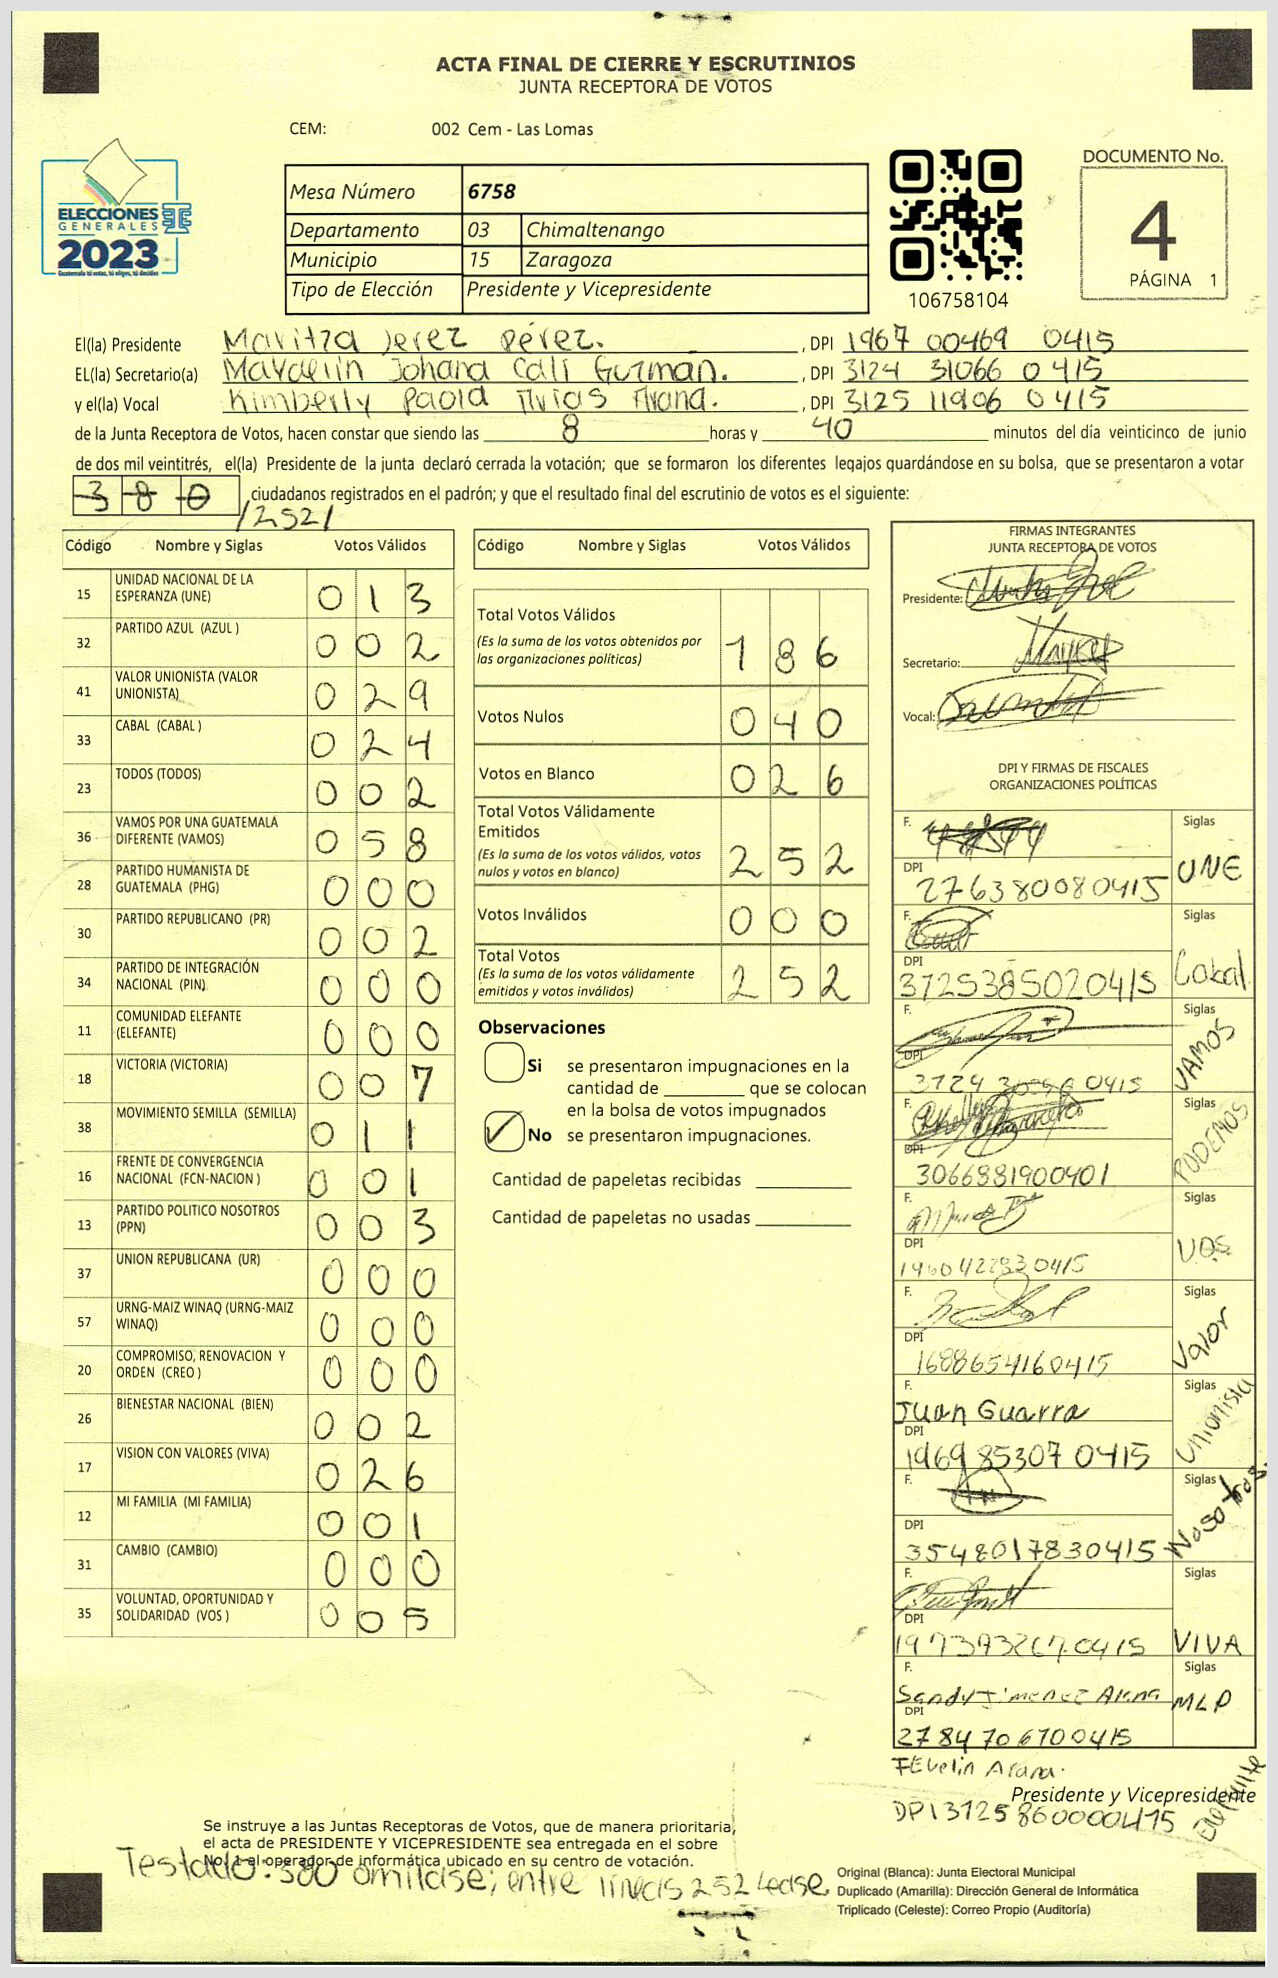 ACTA FINAL DE CIERRE Y ESCRUTINIOS
JUNTA RECEPTORA DE VOTOS
CEM: 002 Cem - Las Lomas
ELECCIONES
GENERALES
2023
Guatemala tú votas, tú eliges, tú decides
Mesa Número 6758
Departamento 03 Chimaltenango
Municipio 15 Zaragoza
Tipo de Elección Presidente y Vicepresidente
106758104
DOCUMENTO No.
4
PÁGINA 1
El(la) Presidente Maritza Jerez Pérez. , DPI 1967 00469 0415
EL(la) Secretario(a) Mayaelin Johana Cali Guzman. , DPI 3124 31066 0415
y el(la) Vocal Kimberly Paola Arias Arana. , DPI 3125 11906 0415
de la Junta Receptora de Votos, hacen constar que siendo las 8 horas y 40 minutos del día veinticinco de junio
de dos mil veintitrés, el(la) Presidente de la junta declaró cerrada la votación; que se formaron los diferentes legajos guardándose en su bolsa, que se presentaron a votar
380 ,ciudadanos registrados en el padrón; y que el resultado final del escrutinio de votos es el siguiente:
/252/
Código Nombre y Siglas Votos Válidos
15 UNIDAD NACIONAL DE LA ESPERANZA (UNE) 013
32 PARTIDO AZUL (AZUL ) 002
41 VALOR UNIONISTA (VALOR UNIONISTA) 029
33 CABAL (CABAL ) 024
23 TODOS (TODOS) 002
36 VAMOS POR UNA GUATEMALA DIFERENTE (VAMOS) 058
28 PARTIDO HUMANISTA DE GUATEMALA (PHG) 000
30 PARTIDO REPUBLICANO (PR) 002
34 PARTIDO DE INTEGRACIÓN NACIONAL (PIN) 000
11 COMUNIDAD ELEFANTE (ELEFANTE) 000
18 VICTORIA (VICTORIA) 007
38 MOVIMIENTO SEMILLA (SEMILLA) 011
16 FRENTE DE CONVERGENCIA NACIONAL (FCN-NACION ) 001
13 PARTIDO POLITICO NOSOTROS (PPN) 003
37 UNION REPUBLICANA (UR) 000
57 URNG-MAIZ WINAQ (URNG-MAIZ WINAQ) 000
20 COMPROMISO, RENOVACION Y ORDEN (CREO ) 000
26 BIENESTAR NACIONAL (BIEN) 002
17 VISION CON VALORES (VIVA) 026
12 MI FAMILIA (MI FAMILIA) 001
31 CAMBIO (CAMBIO) 000
35 VOLUNTAD, OPORTUNIDAD Y SOLIDARIDAD (VOS ) 005
Código Nombre y Siglas Votos Válidos
Total Votos Válidos 186
(Es la suma de los votos obtenidos por
las organizaciones políticas)
Votos Nulos 040
Votos en Blanco 026
Total Votos Válidamente
Emitidos 252
(Es la suma de los votos válidos, votos
nulos y votos en blanco)
Votos Inválidos 000
Total Votos 252
(Es la suma de los votos válidamente
emitidos y votos inválidos)
Observaciones
Si se presentaron impugnaciones en la
cantidad de ________ que se colocan
en la bolsa de votos impugnados
No se presentaron impugnaciones.
Cantidad de papeletas recibidas
Cantidad de papeletas no usadas
FIRMAS INTEGRANTES
JUNTA RECEPTORA DE VOTOS
Presidente:
Secretario:
Vocal:
DPI Y FIRMAS DE FISCALES
ORGANIZACIONES POLÍTICAS
F. Siglas
DPI 276380080415 UNE
F. Siglas
DPI 3725385020415 Cabal
F. Siglas
DPI 0415 VAMOS
F. Siglas
DPI 3066881900401 PODEMOS
F. Siglas
DPI VOS
F. Siglas
DPI 1688654160415 Valor
F. Juan Guarra Siglas
DPI 1969 85307 0415 Unionista
F. Siglas
DPI 3548017830415 Nosotros
F. Siglas
DPI VIVA
F. Sandy Jimenez Arana Siglas
DPI 2784706700415 MLP
F Evelin Arana.
DPI 3125860000415 Elefante
Presidente y Vicepresidente
Se instruye a las Juntas Receptoras de Votos, que de manera prioritaria,
el acta de PRESIDENTE Y VICEPRESIDENTE sea entregada en el sobre
No. 1 al operador de informática ubicado en su centro de votación.
Testado: 380 omitase; entre lineas 252 Lease
Original (Blanca): Junta Electoral Municipal
Duplicado (Amarilla): Dirección General de Informática
Triplicado (Celeste): Correo Propio (Auditoría)